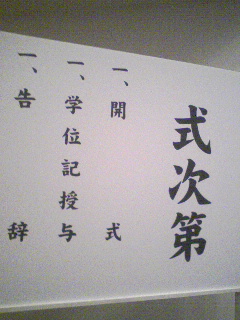 式次第
一、開式
一、学位記授与
一、告辞